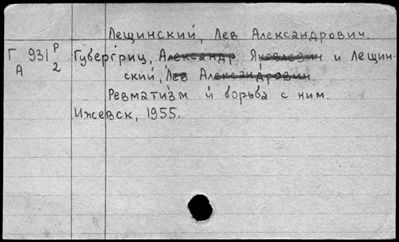 Лещинский, Лев Александрович.
Г 931 Р
А 2
Губергриц, Александр Яковлевич и Лещин-
ский, Лев Александрович.
Ревматизм и борьба с ним.
Ижевск, 1955.